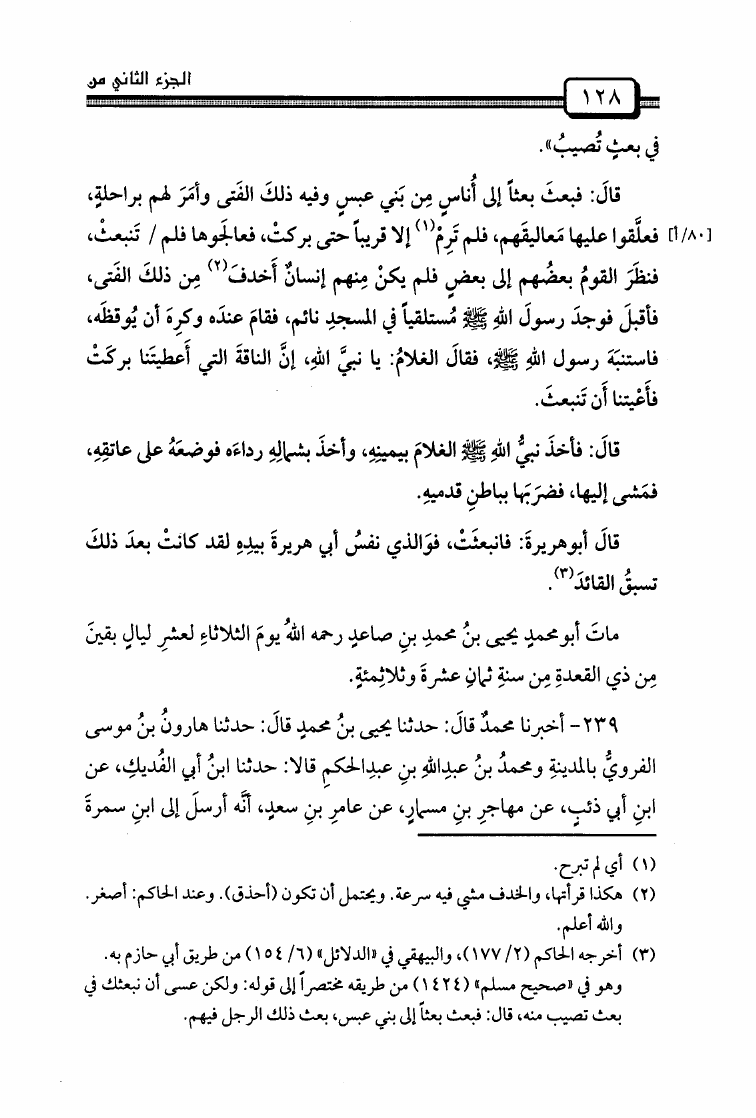 الجزء الثاني من
١٢٨
في بعثٍ تُصيبُ».
قالَ: فبعثَ بعثاً إلى أُناسٍ مِن بَني عبسٍ وفيه ذلكَ الفَتى وأمَرَ لهم براحلةٍ،
[٨٠/أ] فعلَّقوا عليها مَعاليقَهم، فلم تَرِمْ(١) إلا قريباً حتى بركتْ، فعالجوها فلم / تَنبعثْ،
فنظَرَ القومُ بعضُهم إلى بعضٍ فلم يكنْ مِنهم إنسانٌ أَخدفَ(٢) مِن ذلكَ الفَتى،
فأقبلَ فوجدَ رسولَ اللهِ ﷺ مُستلقياً في المسجدِ نائم، فقامَ عندَه وكرِهَ أن يُوقظَه،
فاستنبَهَ رسول اللهِ ﷺ، فقالَ الغلامُ: يا نبيَّ اللهِ، إنَّ الناقةَ التي أَعطيتَنا بركتْ
فأَعْيتنا أن تَنبعثَ.
قالَ: فأخذَ نبيُّ اللهِ ﷺ الغلامَ بيمينِهِ، وأخذَ بشمالِهِ رداءَه فوضعَهُ على عاتقِهِ،
فمَشى إليها، فضرَبَها بباطنِ قدميهِ.
قالَ أبوهريرةَ: فانبعثَتْ، فوَالذي نفسُ أبي هريرةَ بيدِهِ لقد كانتْ بعدَ ذلكَ
تسبقُ القائدَ(٣).
ماتَ أبومحمدٍ يحيى بنُ محمدِ بنِ صاعدٍ رحمه اللهُ يومَ الثلاثاءِ لعشرِ ليالٍ بقينَ
مِن ذي القعدةِ مِن سنةِ ثمانِ عشرةَ وثلاثِمئةٍ.
٢٣٩- أخبرنا محمدٌ قالَ: حدثنا يحيى بنُ محمدٍ قالَ: حدثنا هارونُ بنُ موسى
الفرويُّ بالمدينةِ ومحمدُ بنُ عبدِاللهِ بنِ عبدِالحكمِ قالا: حدثنا ابنُ أبي الفُديكِ، عن
ابنِ أبي ذئبٍ، عن مهاجرِ بنِ مسمارٍ، عن عامرِ بنِ سعدٍ، أنَّه أرسلَ إلى ابنِ سمرةَ
(١) أي لم تبرح.
(٢) هكذا قرأتها، والخدف مشي فيه سرعة. ويحتمل أن تكون (أحذق). وعند الحاكم: أصغر.
والله أعلم.
(٣) أخرجه الحاكم (٢/ ١٧٧)، والبيهقي في «الدلائل» (٦/ ١٥٤) من طريق أبي حازم به.
وهو في «صحيح مسلم» (١٤٢٤) من طريقه مختصراً إلى قوله: ولكن عسى أن نبعثك في
بعث تصيب منه، قال: فبعث بعثاً إلى بني عبس، بعث ذلك الرجل فيهم.